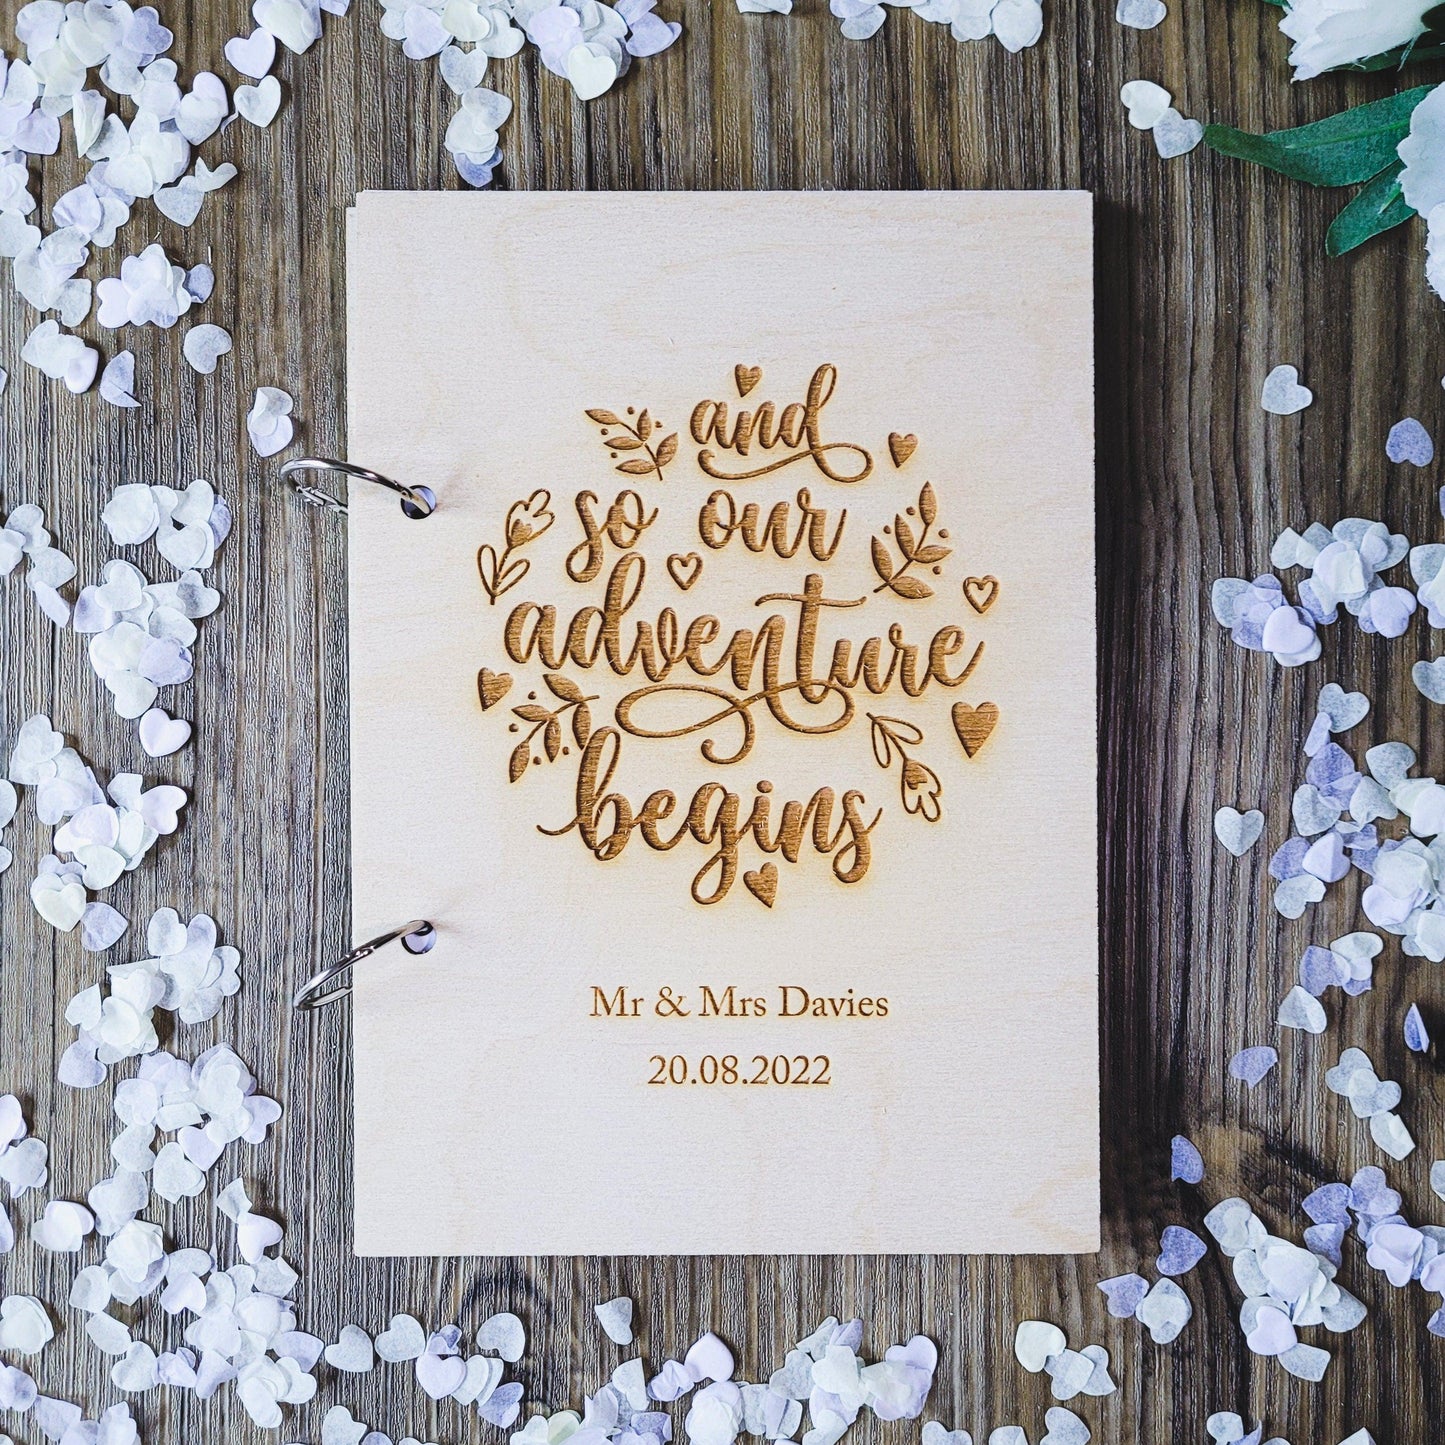 and
so our
adventure
begins
Mr & Mrs Davies
20.08.2022